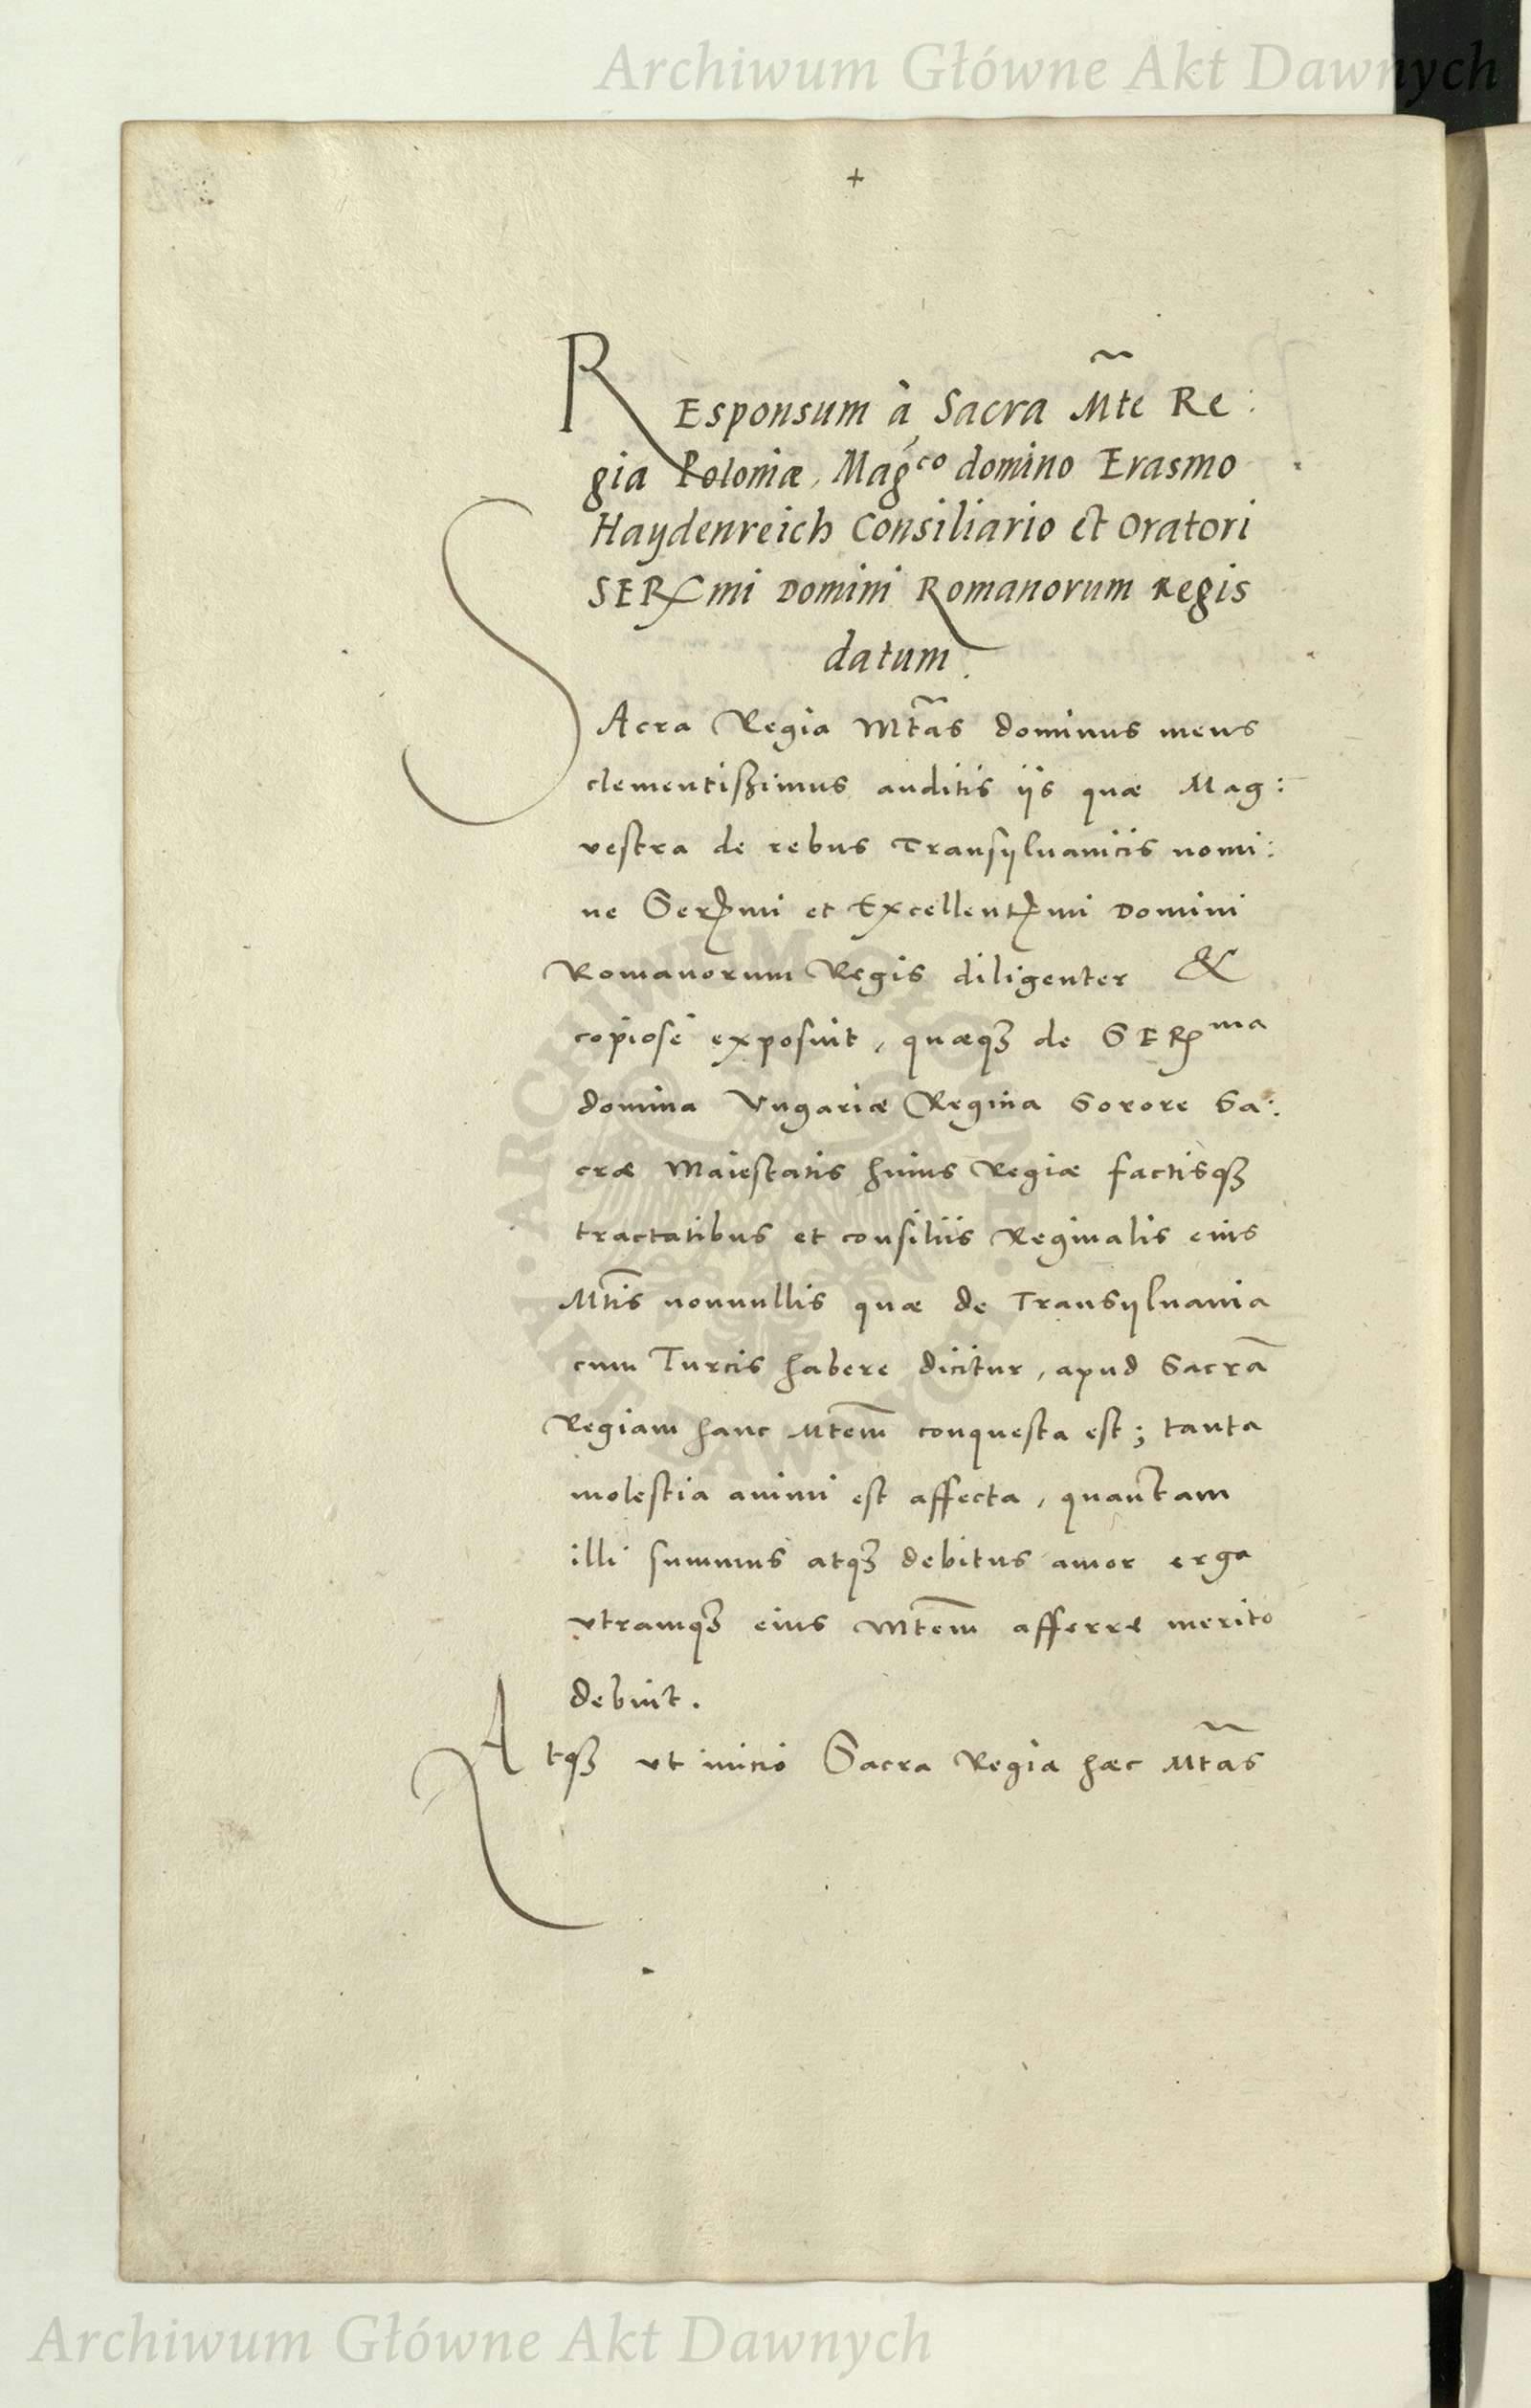 Archiwum Główne Akt Dawnych
+
REsponsum à Sacra Mte Re:
gia Poloniæ, Magco domino Erasmo
Haydenreich Consiliario et Oratori
SERmi Domini Romanorum Regis
datum.
SAcra Regia Mtas dominus meus
clementißimus auditis ijs quæ Mag:
vestra de rebus Transÿluanicis nomi:
ne Sermi et Excellentmi Domini
Romanorum Regis diligenter &
copiosè exposuit, quæq3 de SERma
domina Vngariæ Regina Sorore Sa:
cræ Maiestatis huius Regiæ factisq3
tractatibus et consiliis Reginalis eius
Mtis nonnullis quæ de Transÿluania
cum Turcis habere dicitur, apud Sacrã
Regiam hanc Mtem conquesta est; tanta
molestia animi est affecta, quantam
illi summus atq3 debitus amor erga
vtramq3 eius Mtem afferre merito
debuit.
Atq3 vt inicio Sacra Regia hæc Mtas
ARCHIWUM GŁÓWNE AKT DAWNYCH
Archiwum Główne Akt Dawnych